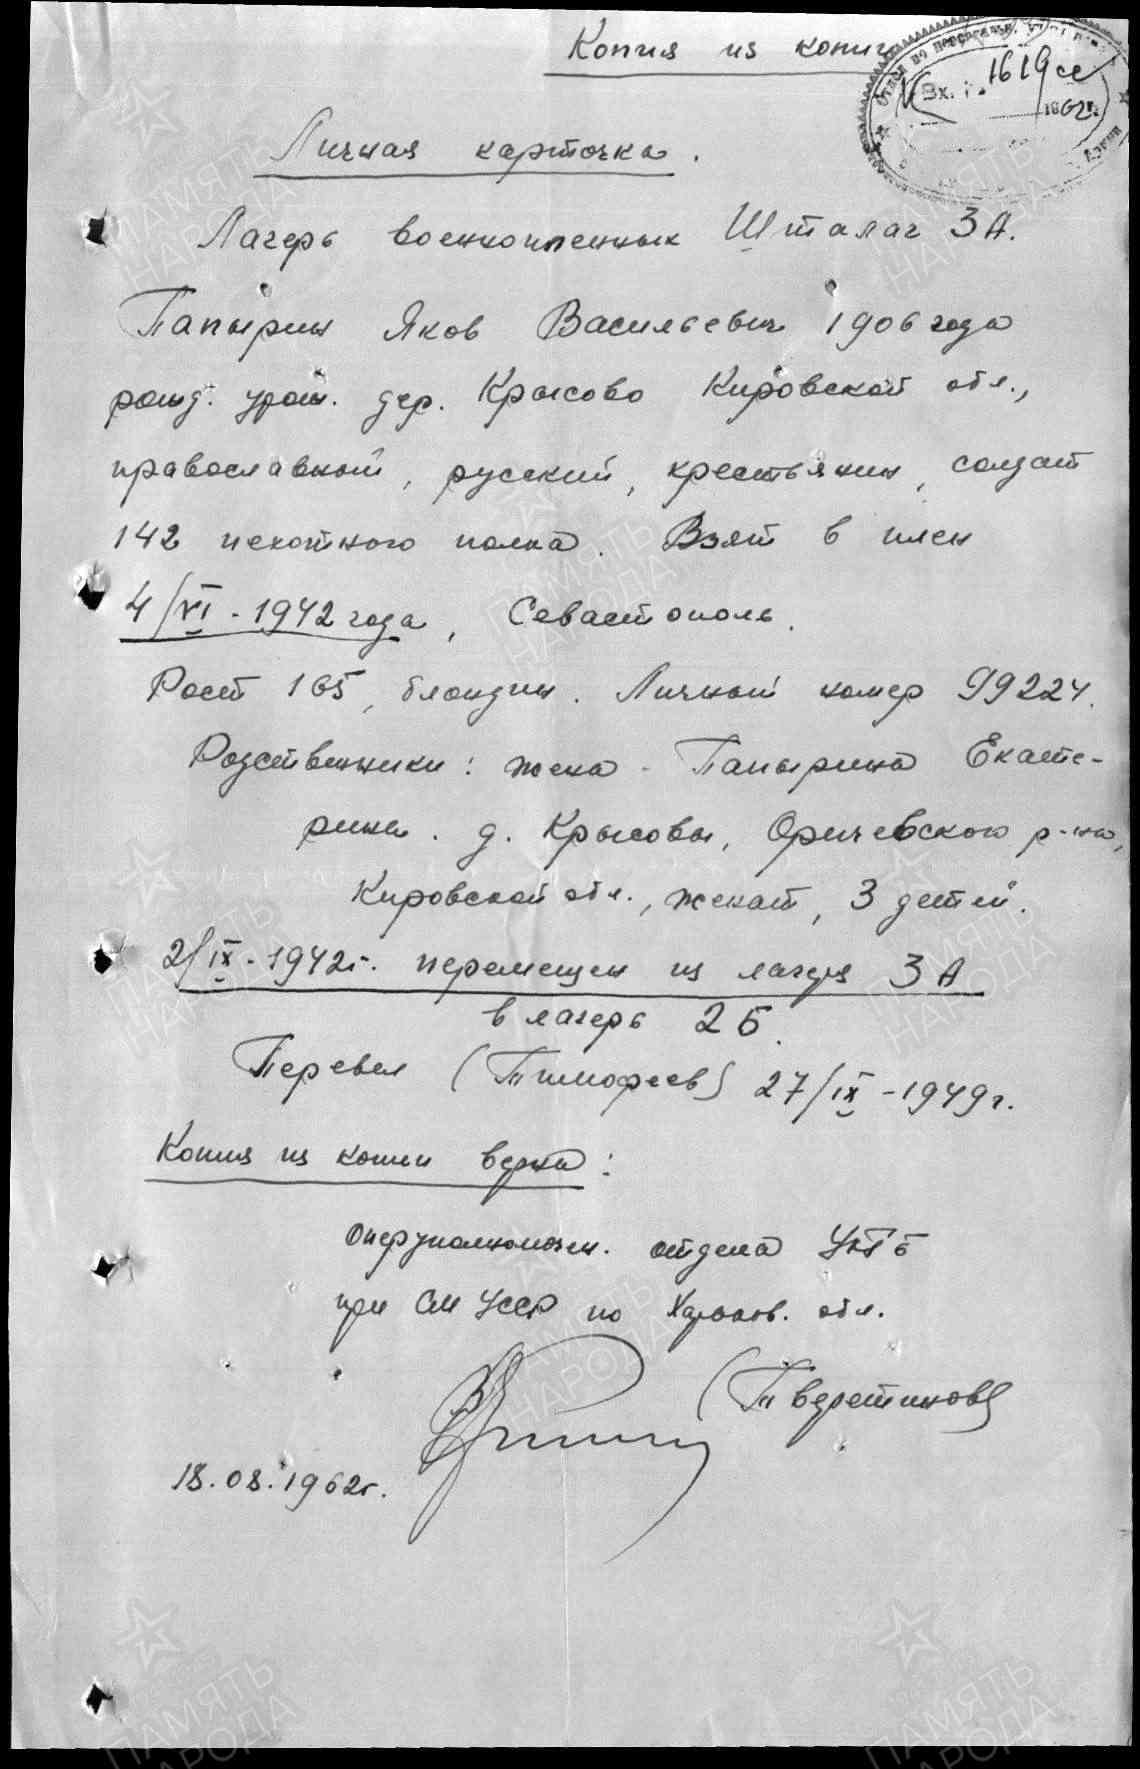 Копия из копии
Вх. № 1619сс
1962г.
Личная карточка.
Лагерь военнопленных Шталаг 3А.
Папырин Яков Васильевич 1906 года
рожд. урож. дер. Крысово Кировской обл.,
православный, русский, крестьянин, солдат
142 пехотного полка. Взят в плен
4/VI-1942 года, Севастополь.
Рост 165, блондин. Личный номер 99224.
Родственники: жена - Папырина Екате-
рина. д. Крысовы, Оричевского р-на,
Кировской обл., женат, 3 детей.
2/IX-1942г. перемещен из лагеря 3А
в лагерь 2Б.
Перевел (Тимофеев) 27/IX-1949г.
Копия из копии верна:
Оперуполномочен. отдела УКГБ
при СМ УССР по Харьков. обл.
(Тверетинов)
18.08.1962г.
ПАМЯТЬ
НАРОДА